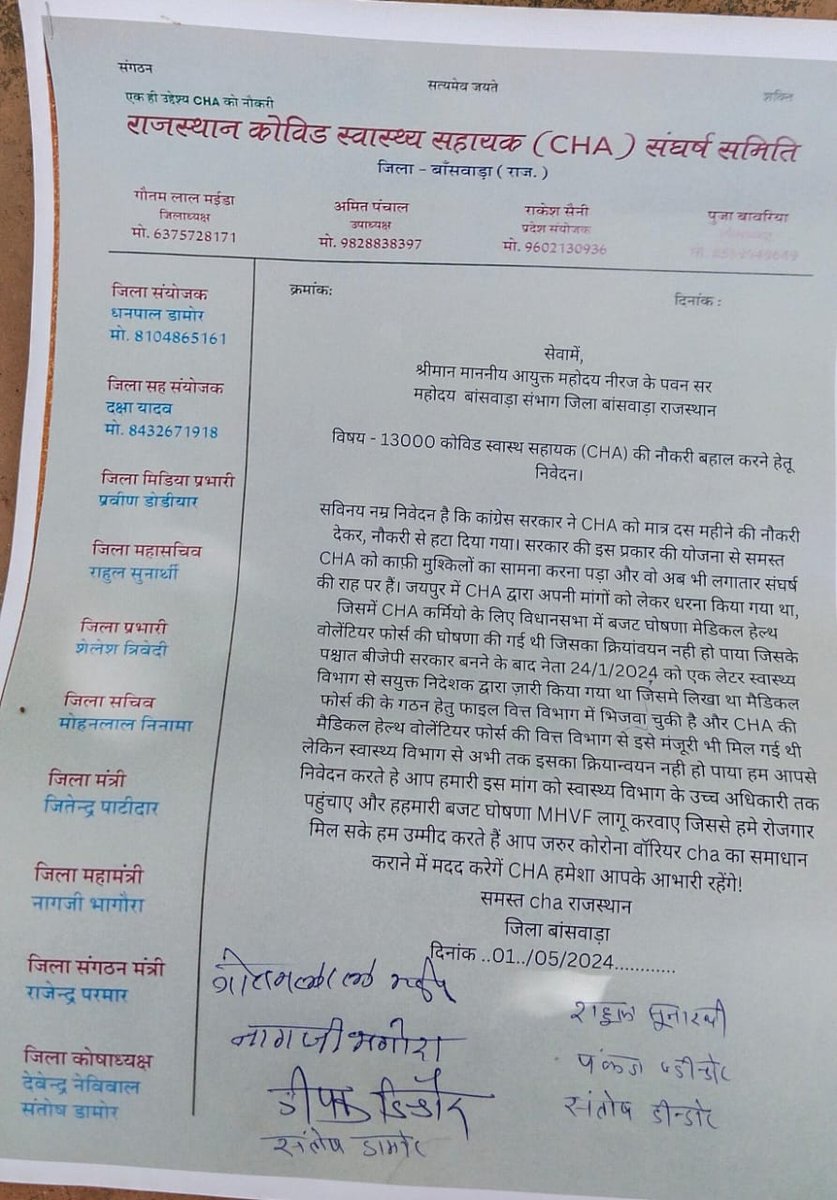 संगठन
सत्यमेव जयते
शक्ति
एक ही उद्देश्य CHA को नौकरी
राजस्थान कोविड स्वास्थ्य सहायक (CHA) संघर्ष समिति
जिला - बाँसवाड़ा ( राज. )
गौतम लाल मईडा
जिलाध्यक्ष
मो. 6375728171
अमित पंचाल
उपाध्यक्ष
मो. 9828838397
राकेश सैनी
प्रदेश संयोजक
मो. 9602130936
पुजा बावरिया
जिला संयोजक
धनपाल डामोर
मो. 8104865161
जिला सह संयोजक
दक्षा यादव
मो. 8432671918
जिला मिडिया प्रभारी
प्रवीण डोडीयार
जिला महासचिव
राहुल सुनार्थी
जिला प्रभारी
शेलेश त्रिवेदी
जिला सचिव
मोहनलाल निनामा
जिला मंत्री
जितेन्द्र पाटीदार
जिला महामंत्री
नागजी भागौरा
जिला संगठन मंत्री
राजेन्द्र परमार
जिला कोषाध्यक्ष
देवेन्द्र नेविवाल
संतोष डामोर
क्रमांकः
दिनांक :
सेवामें,
श्रीमान माननीय आयुक्त महोदय नीरज के पवन सर
महोदय बांसवाड़ा संभाग जिला बांसवाड़ा राजस्थान
विषय - 13000 कोविड स्वास्थ सहायक (CHA) की नौकरी बहाल करने हेतू
निवेदन।
सविनय नम्र निवेदन है कि कांग्रेस सरकार ने CHA को मात्र दस महीने की नौकरी
देकर, नौकरी से हटा दिया गया। सरकार की इस प्रकार की योजना से समस्त
CHA को काफ़ी मुश्किलों का सामना करना पड़ा और वो अब भी लगातार संघर्ष
की राह पर हैं। जयपुर में CHA द्वारा अपनी मांगों को लेकर धरना किया गया था,
जिसमें CHA कर्मियो के लिए विधानसभा में बजट घोषणा मेडिकल हेल्थ
वोलेंटियर फोर्स की घोषणा की गई थी जिसका क्रियांवयन नही हो पाया जिसके
पश्चात बीजेपी सरकार बनने के बाद नेता 24/1/2024 को एक लेटर स्वास्थ्य
विभाग से सयुक्त निदेशक द्वारा ज़ारी किया गया था जिसमे लिखा था मैडिकल
फोर्स की के गठन हेतु फाइल वित्त विभाग में भिजवा चुकी है और CHA की
मैडिकल हेल्थ वोलेंटियर फोर्स की वित्त विभाग से इसे मंजूरी भी मिल गई थी
लेकिन स्वास्थ्य विभाग से अभी तक इसका क्रियान्वयन नही हो पाया हम आपसे
निवेदन करते हे आप हमारी इस मांग को स्वास्थ्य विभाग के उच्च अधिकारी तक
पहुंचाए और हहमारी बजट घोषणा MHVF लागू करवाए जिससे हमे रोजगार
मिल सके हम उम्मीद करते हैं आप जरुर कोरोना वॉरियर cha का समाधान
कराने में मदद करेगें CHA हमेशा आपके आभारी रहेंगे!
समस्त cha राजस्थान
जिला बांसवाड़ा
दिनांक ..01../05/2024............
गोतमलाल मईडा
नागजी भगोरा
दीपक डिन्डोर
संतोष डामोर
राहुल सुनारथी
पंकज डीन्डोर
संतोष डीन्डोर